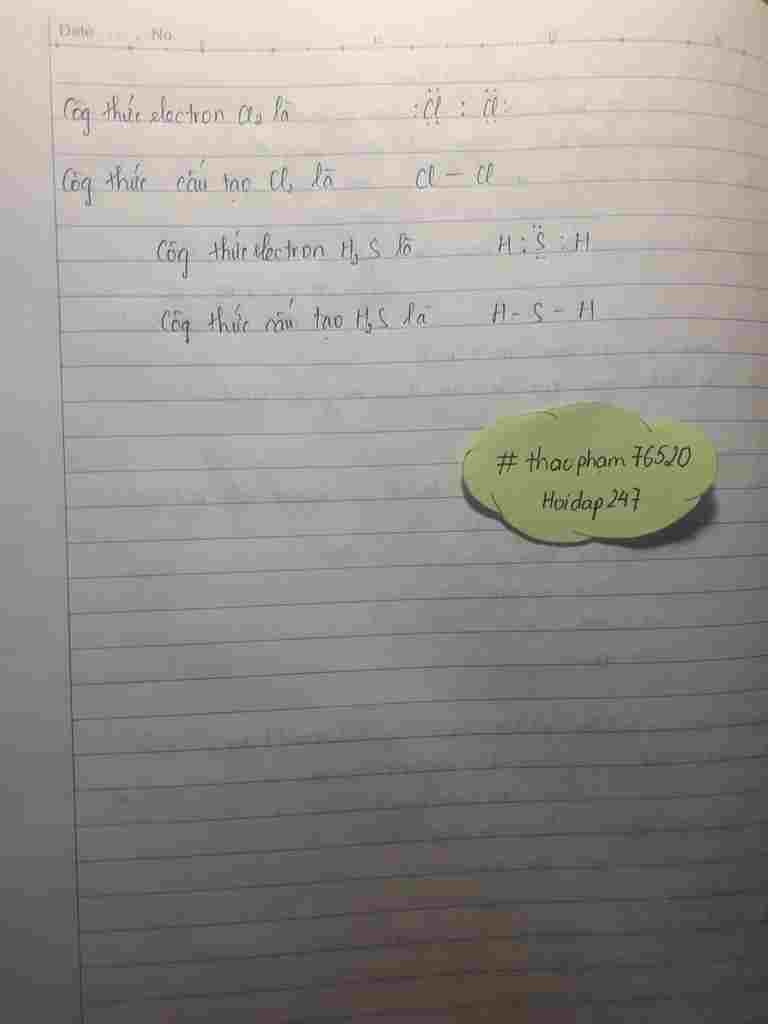 Date No
Côg thức electron Cl₂ là :C̤̈l : C̤̈l:
Côg thức cấu tạo Cl₂ là Cl - Cl
Côg thức electron H₂S là H : S̤̈ : H
Côg thức cấu tạo H₂S là H - S - H
# thaopham76520
Hoidap247